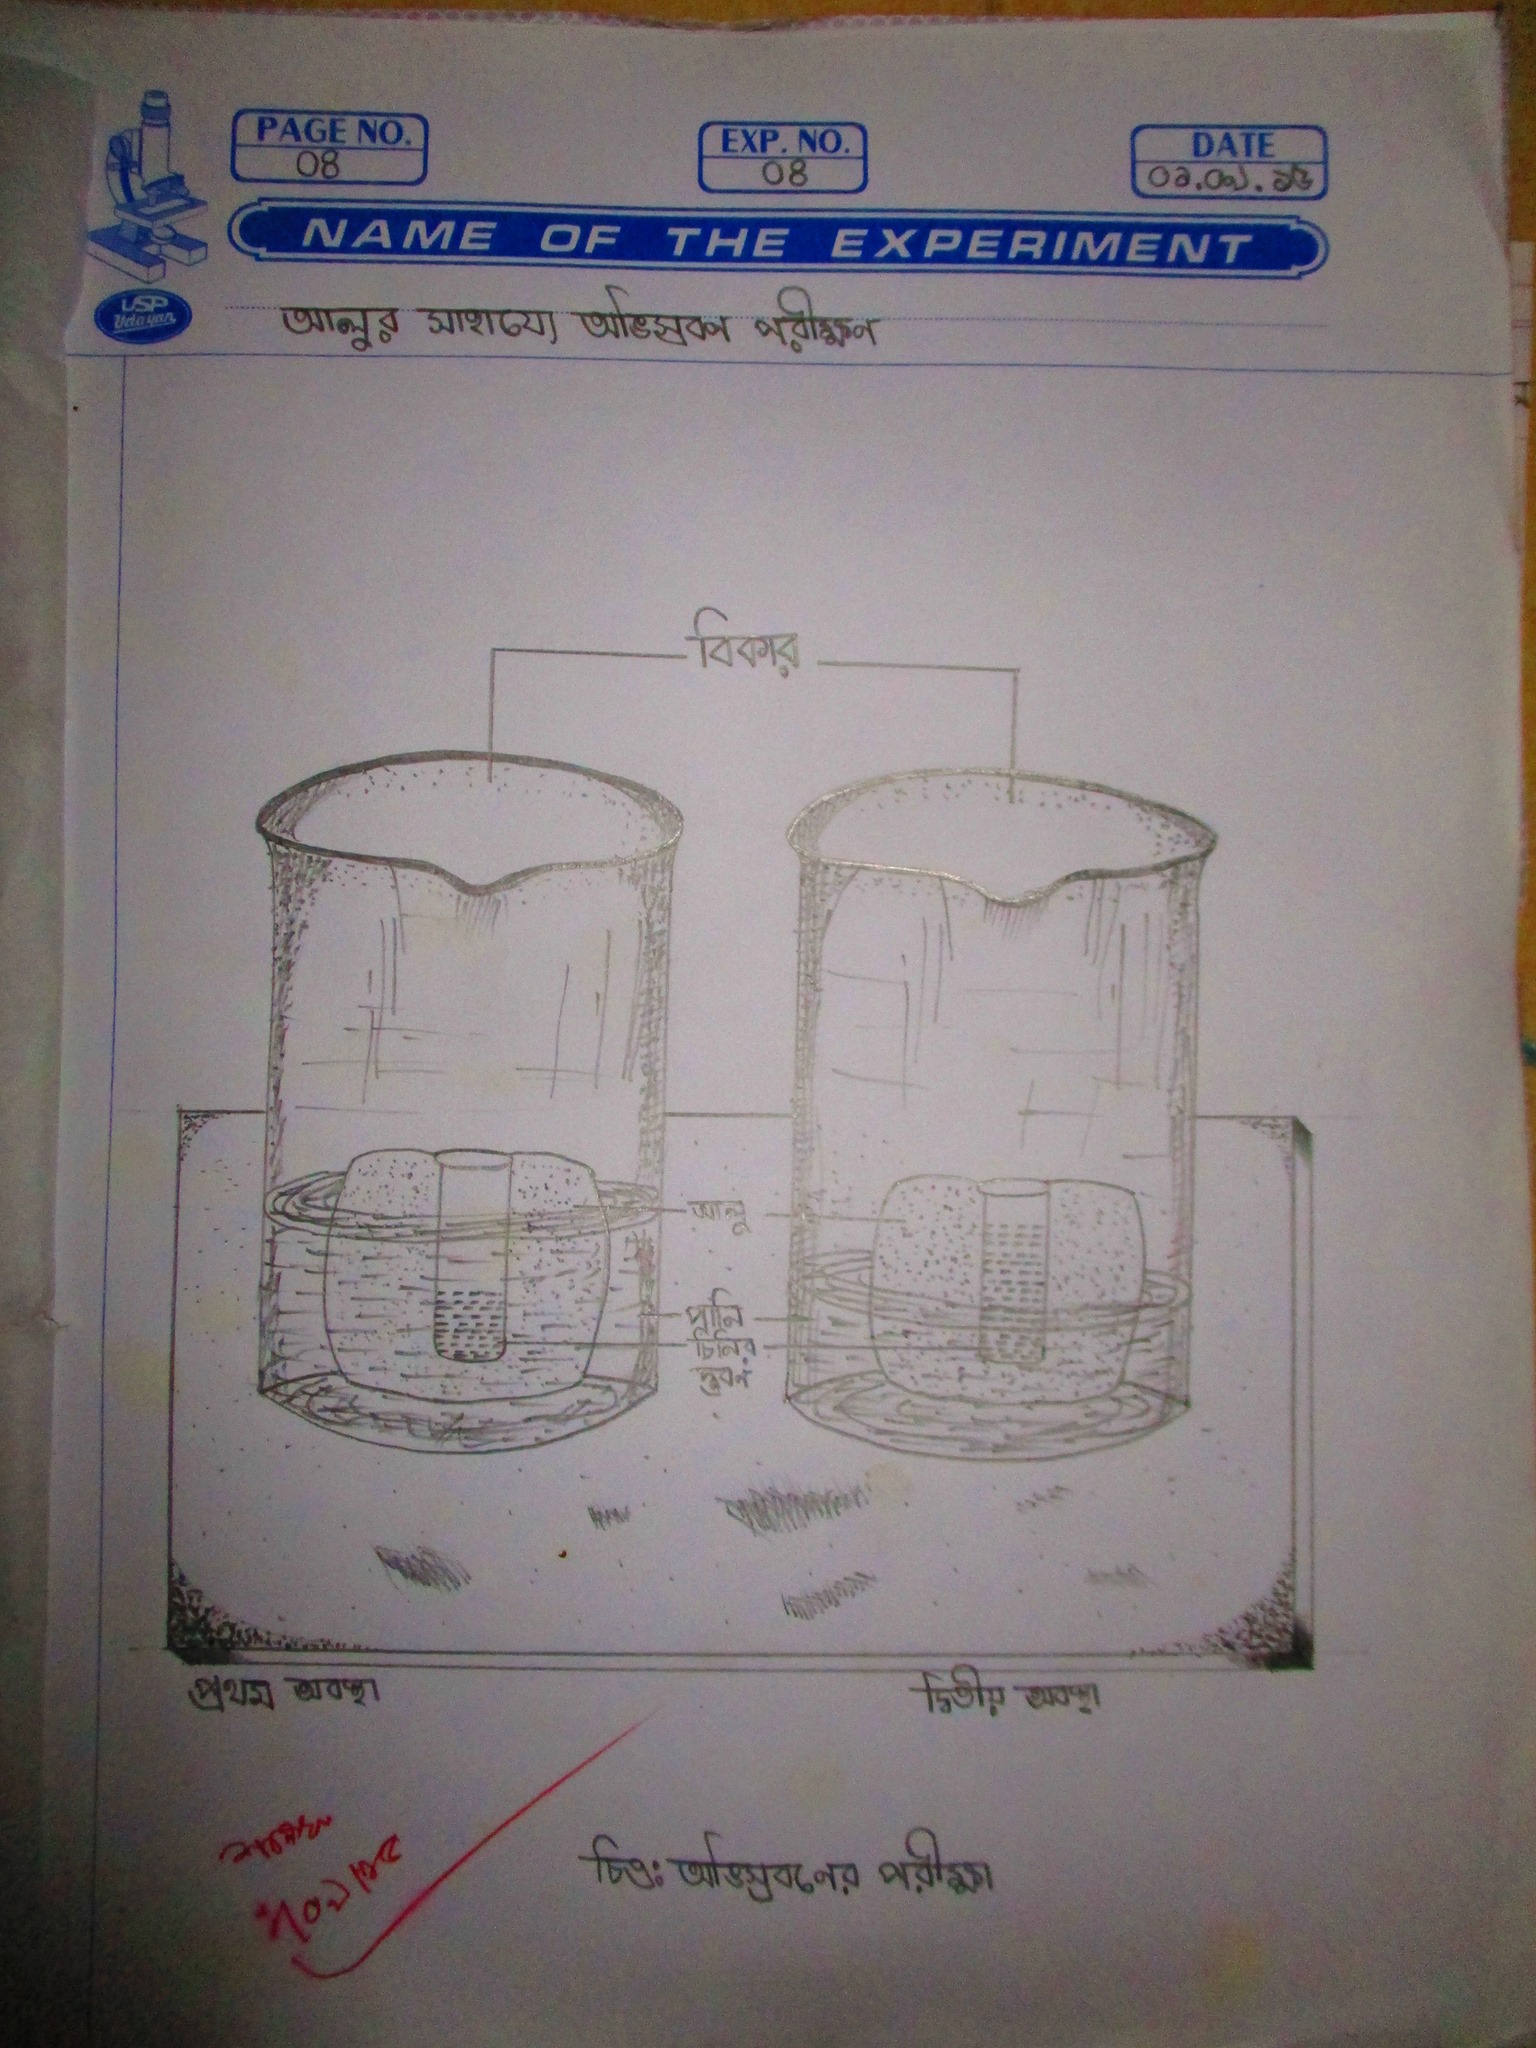 PAGE NO.
08
EXP. NO.
08
DATE
NAME OF THE EXPERIMENT
USP
Udayan
আলুর সাহায্যে অভিস্রবণ পরীক্ষণ
বিকার
আলু
পানি
চিনির
দ্রবণ
প্রথম অবস্থা
দ্বিতীয় অবস্থা
চিত্র: অভিস্রবনের পরীক্ষা